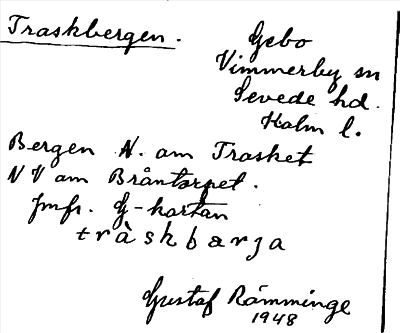 Traskbergen.
Gebo
Vimmerby sn
Sevede hd.
Kalm l.
Bergen N. om Trasket
NV om Bråntorpet.
Jmfr. G-kartan
tràskbærja
Gustaf Rämminge
1948